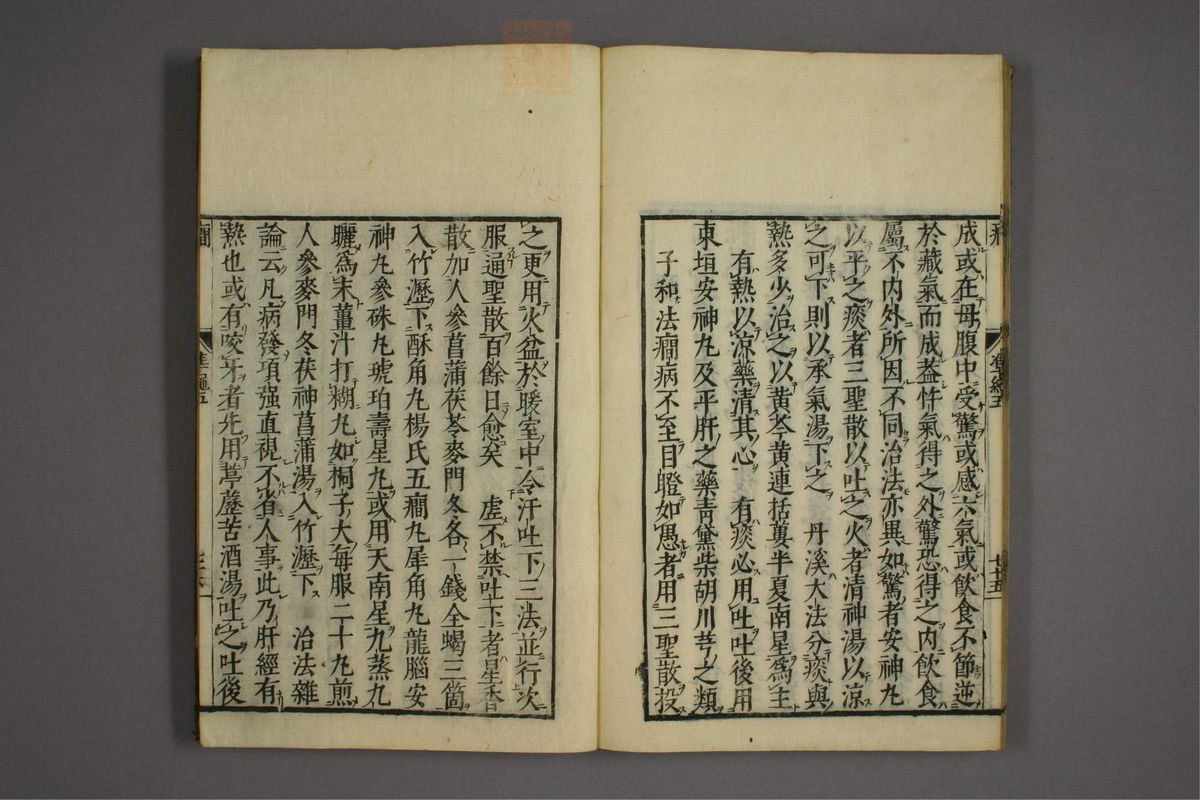 成或在母腹中受驚或感六氣或飲食不節逆
於藏氣而成蓋忤氣得之外驚恐得之內飲食
屬不內外所因不同治法亦異如驚者安神丸
以平之痰者三聖散以吐之火者清神湯以涼
之可下則以承氣湯下之　丹溪大法分痰與
熱多少治之以黃芩黃連括蔞半夏南星爲主
有熱以涼藥清其心　有痰必用吐吐後用
東垣安神丸及平肝之藥青黛柴胡川芎之類
子和法癎病不至目瞪如愚者用三聖散投
之更用火盆於暖室中令汗吐下三法並行次
服通聖散百餘日愈矣　虛不禁吐下者星香
散加人參菖蒲茯苓麥門冬各一錢全蝎三箇
入竹瀝下酥角丸楊氏五癎丸犀角丸龍腦安
神丸參硃丸琥珀壽星丸或用天南星九蒸九
曬爲末薑汁打糊丸如桐子大每服二十丸煎
人參麥門冬茯神菖蒲湯入竹瀝下　治法雜
論云凡病發項强直視不省人事此乃肝經有
熱也或有咬牙者先用葶藶苦酒湯吐之吐後